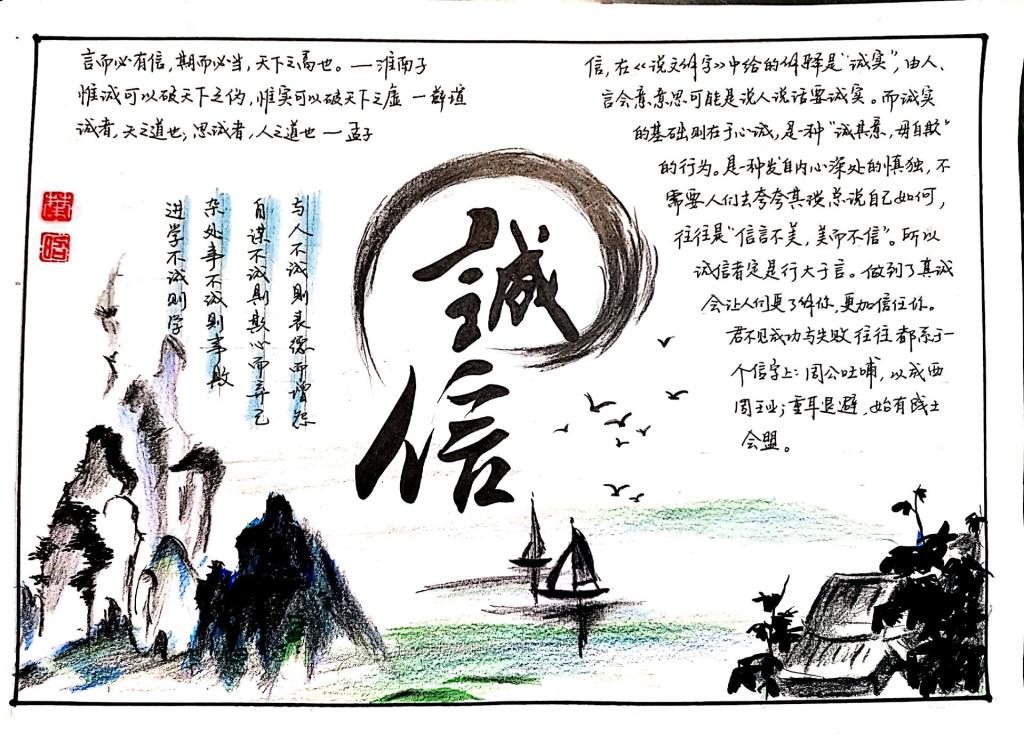 言而必有信,期而必当,天下之高也。—淮南子
惟诚可以破天下之伪,惟实可以破天下之虚 —薛瑄
诚者,天之道也;思诚者,人之道也 —孟子
进学不诚则学
杂处事不诚则事败
自谋不诚则欺心而弃己
与人不诚则丧德而增怨
誠
信
信,在《说文解字》中给的解释是“诚实”,由人、
言会意,意思可能是说人说话要诚实。而诚实
的基础则在于心诚,是一种“诚其意,毋自欺”
的行为。是一种发自内心深处的慎独,不
需要人们去夸夸其谈总说自己如何,
往往是“信言不美,美而不信”。所以
诚信者定是行大于言。做到了真诚
会让人们更了解你,更加信任你。
君不见成功与失败往往都系于一
个信字上:周公吐哺,以成西
周王业;重耳退避,始有践土
会盟。